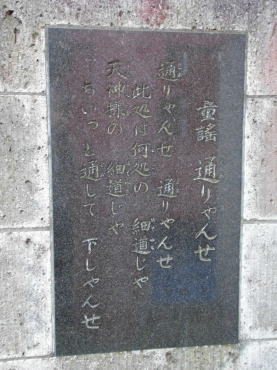 童謡 通りゃんせ
通りゃんせ 通りゃんせ
此処は何処の 細道じゃ
天神様の 細道じゃ
ちいっと通して 下しゃんせ